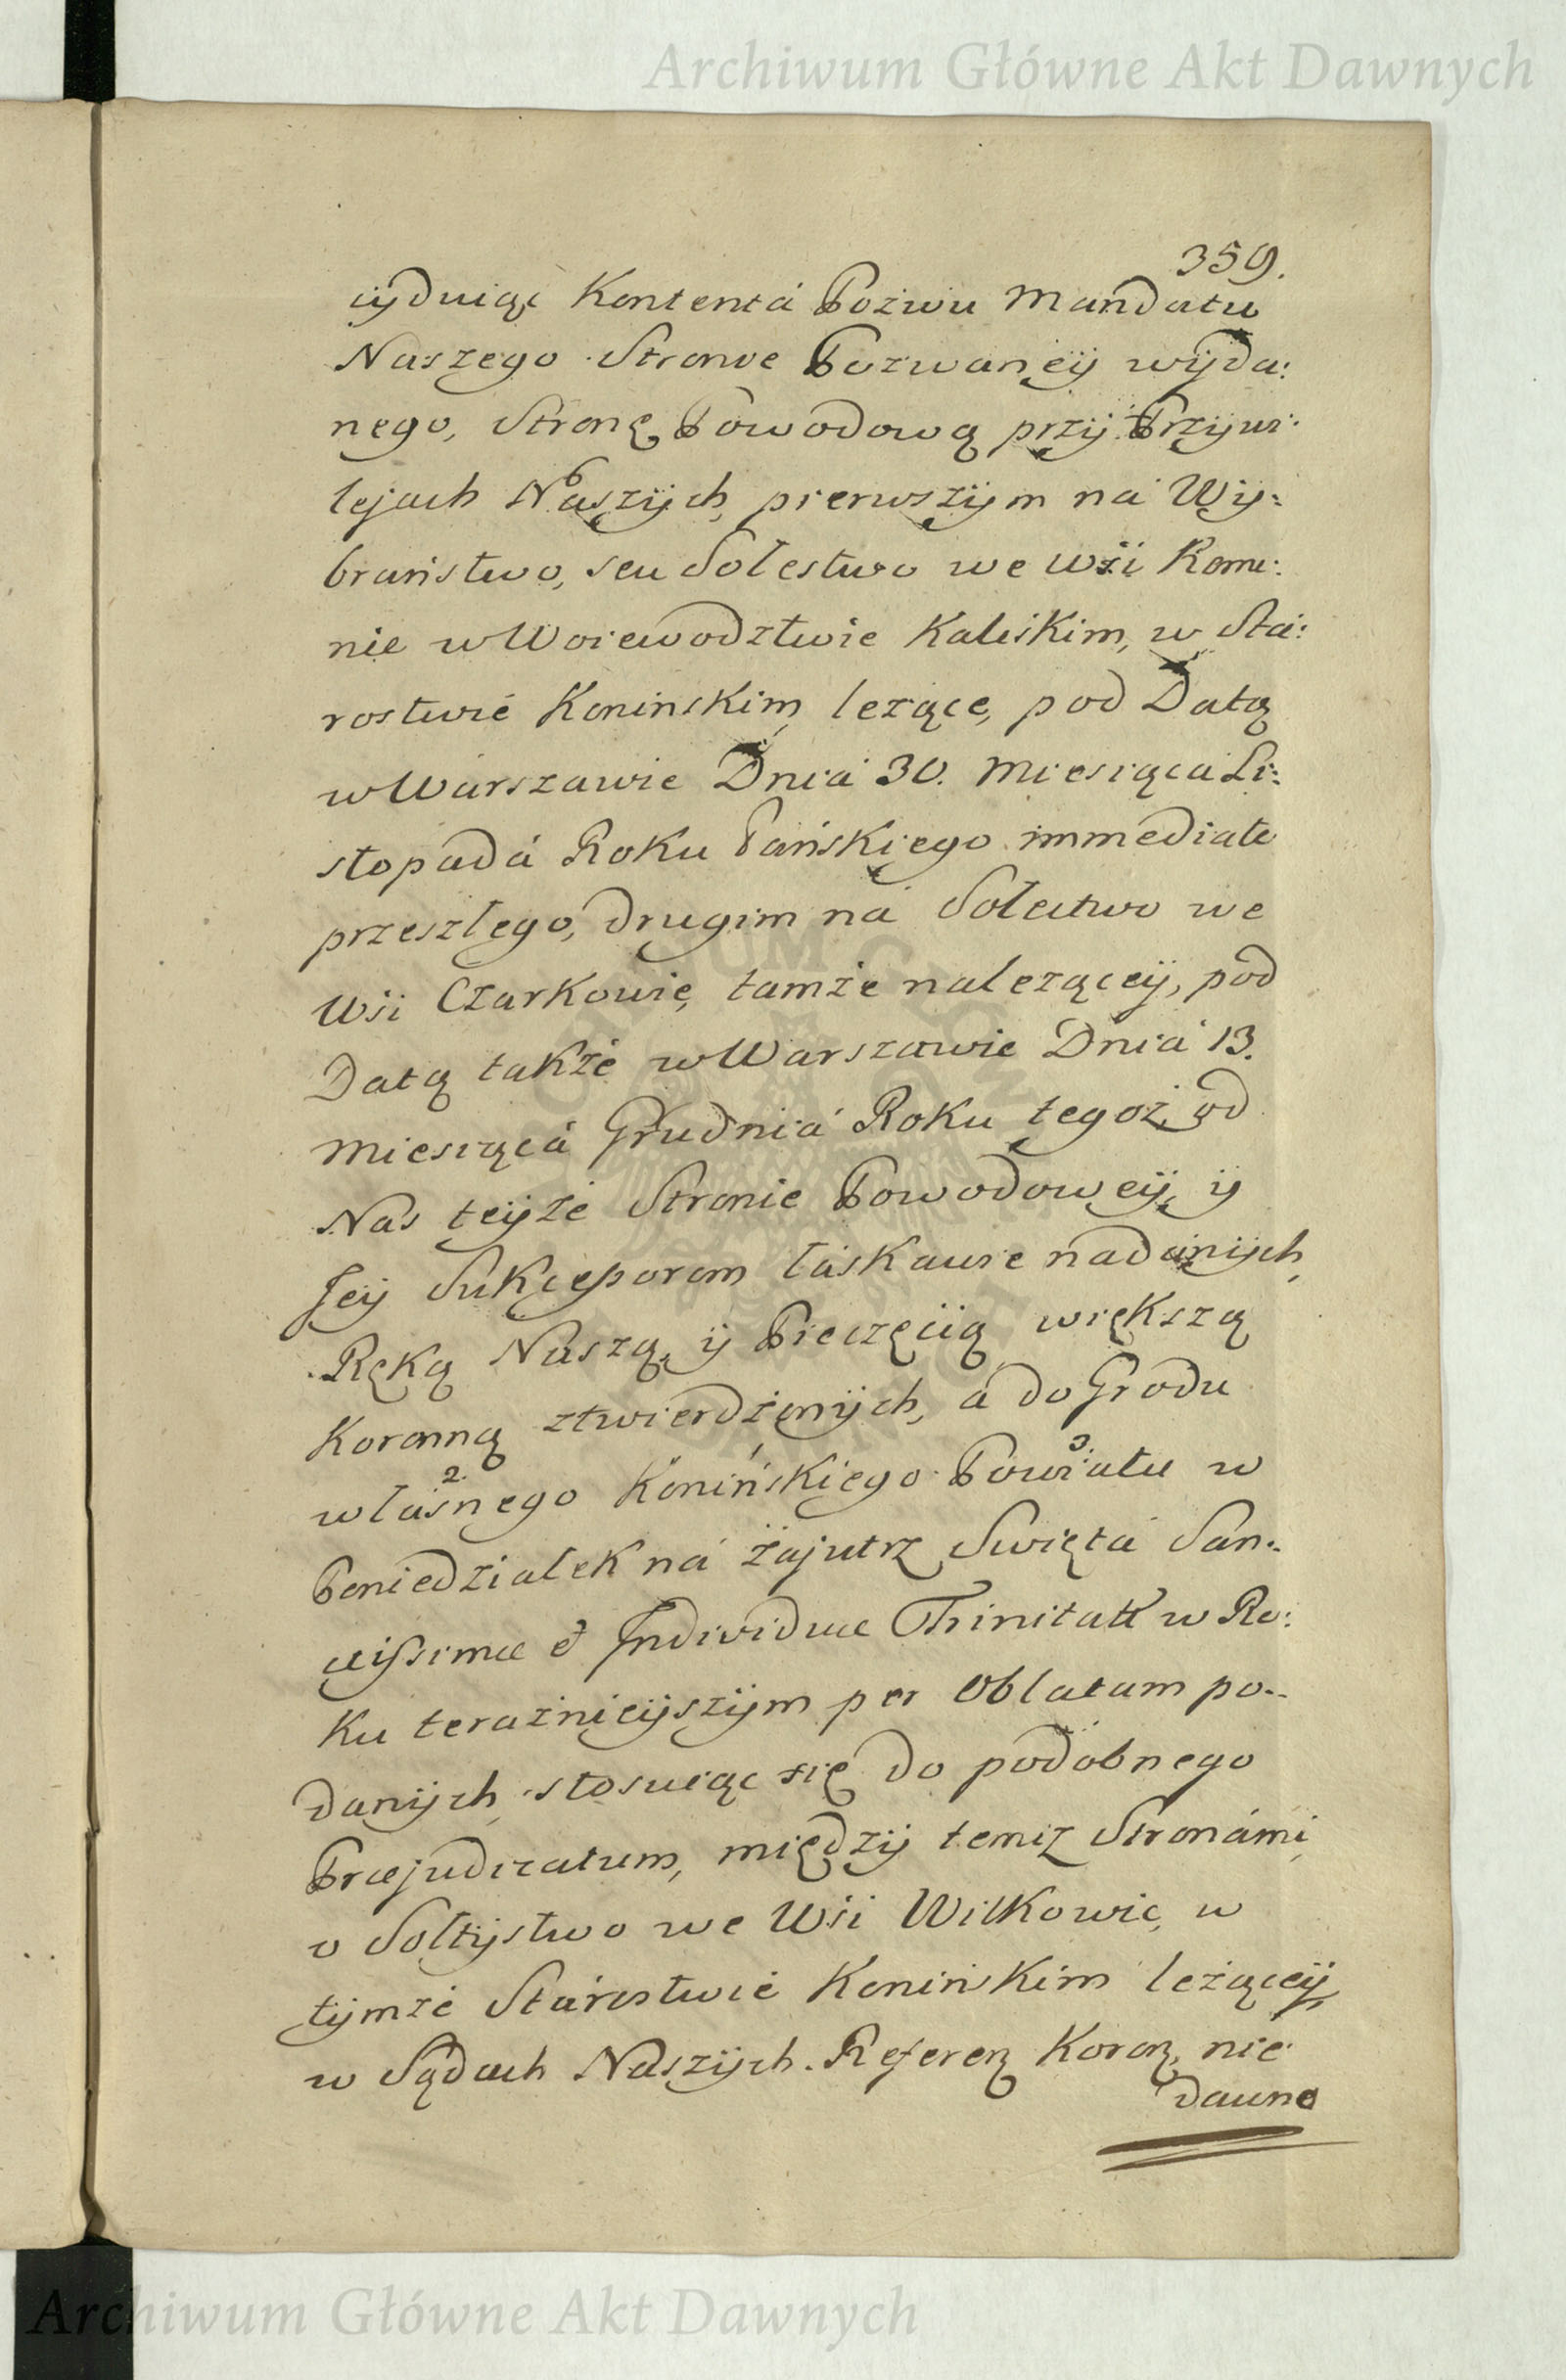 Archiwum Główne Akt Dawnych
359.
cyduiąc Kontentá Pozwu Mandatu
Naszego Stronie Pozwaneÿ wÿda:
nego, Stronę Powodową przÿ Przÿwi:
lejach Naszÿch, pierwszÿm ná Wÿ:
braństwo, seu Sołestwo we Wśi Romi:
nie w Woiewodztwie Kaliskim, w Stá:
rostwie Koninskim leżące, pod Datą
w Warszawie Dniá 30. Miesiącá Li:
stopadá Roku Pańskiego immediate
przeszłego, drugim ná Sołectwo we
Wśi Czarkowie, tamże należąceÿ, pod
Datą także w Warszawie Dniá 13.
Miesiącá Grudniá Roku tegoż, od
Nas teÿże Stronie Powodoweÿ, ÿ
Jeÿ Sukcessorom łáskawie nadánÿch,
Ręką Naszą, ÿ Pieczęcią większą
Koronną ztwierdzonÿch, á do Grodu
własnego Konińskiego Powiatu w
2. 3
Poniedziałek ná zajutrz Swiętá San:
ctissimæ et Individuæ Trinitatt w Ro:
ku teraznieÿszÿm per Oblatam po:
danÿch, stosuiąc się do podobnego
Præjudicatum, międzÿ temiz Stronámi,
o Sołtÿstwo we Wśi Wilkowie, w
tÿmże Stárostwie Konińskim leżąceÿ,
w Sądach Naszÿch Referen Koron, nie
dawno
Archiwum Główne Akt Dawnych